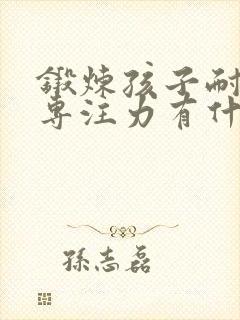 锻炼孩子耐
专注力有什
孙志磊